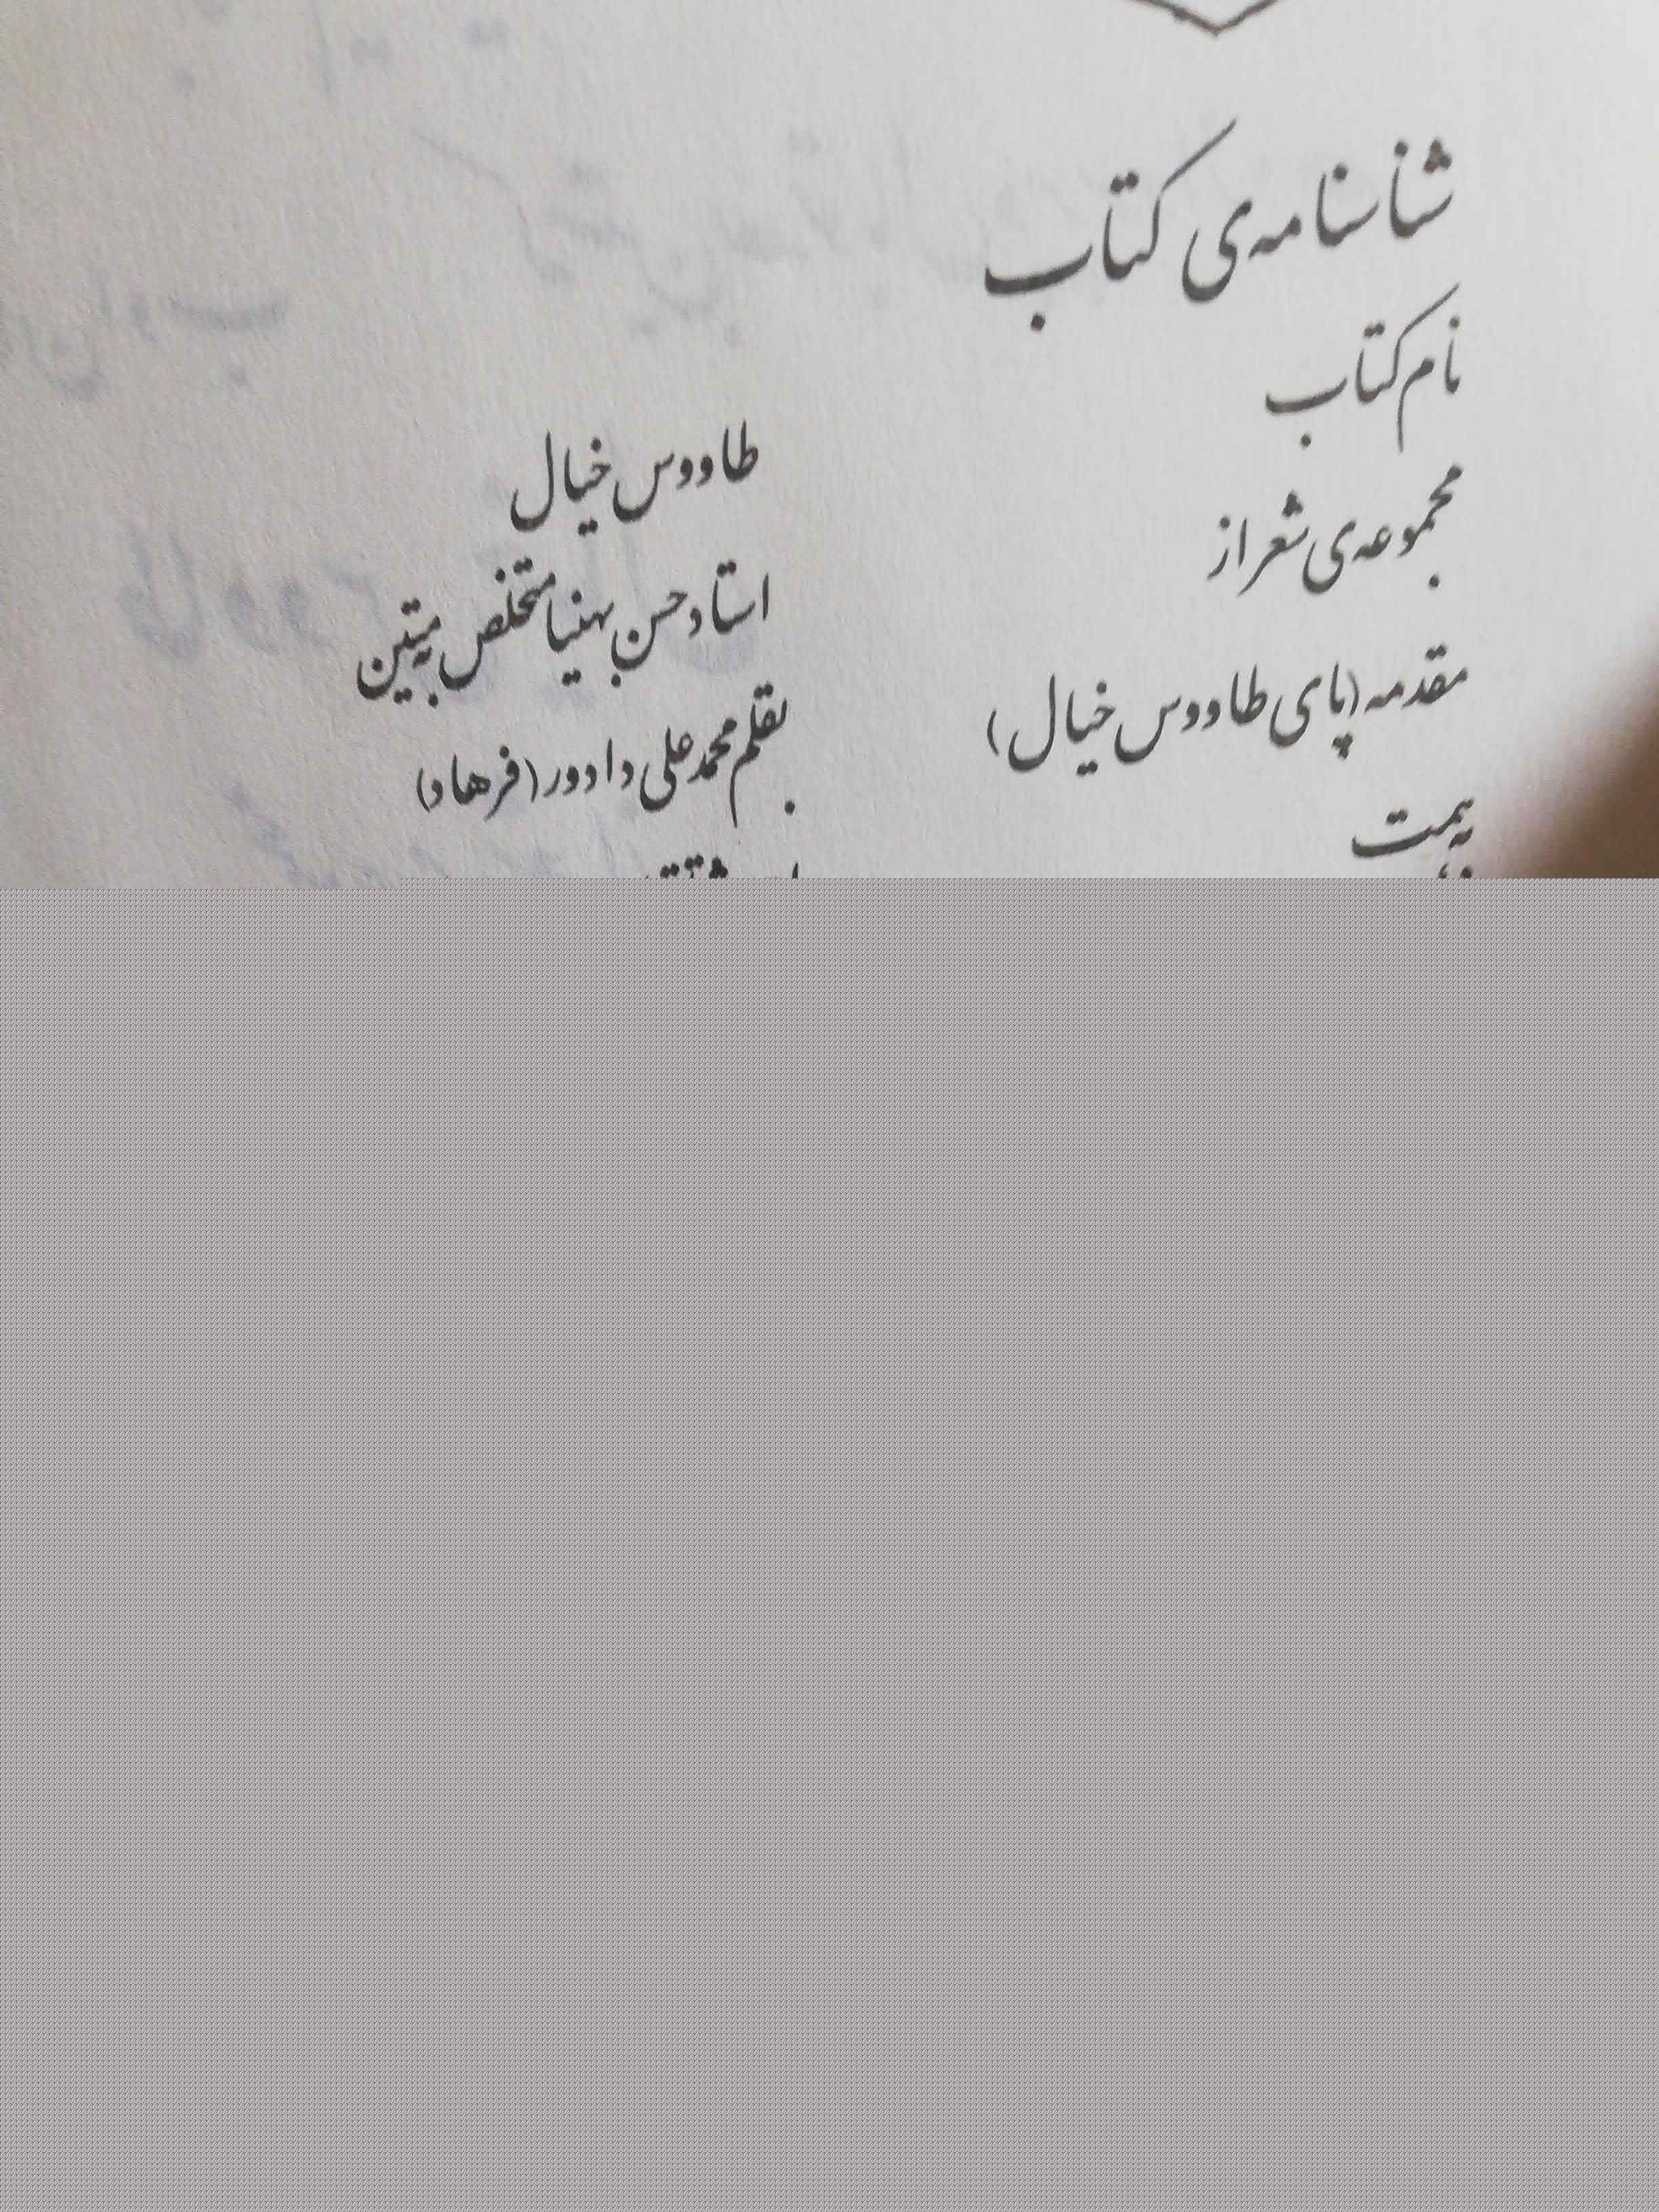 شناسنامه‌ی کتاب
نام کتاب
طاووس خیال
مجموعه‌ی شعر از
استاد حسن بهنیا متخلص به متین
مقدمه (پای طاووس خیال)
بقلم محمدعلی دادور (فرهاد)
به همت